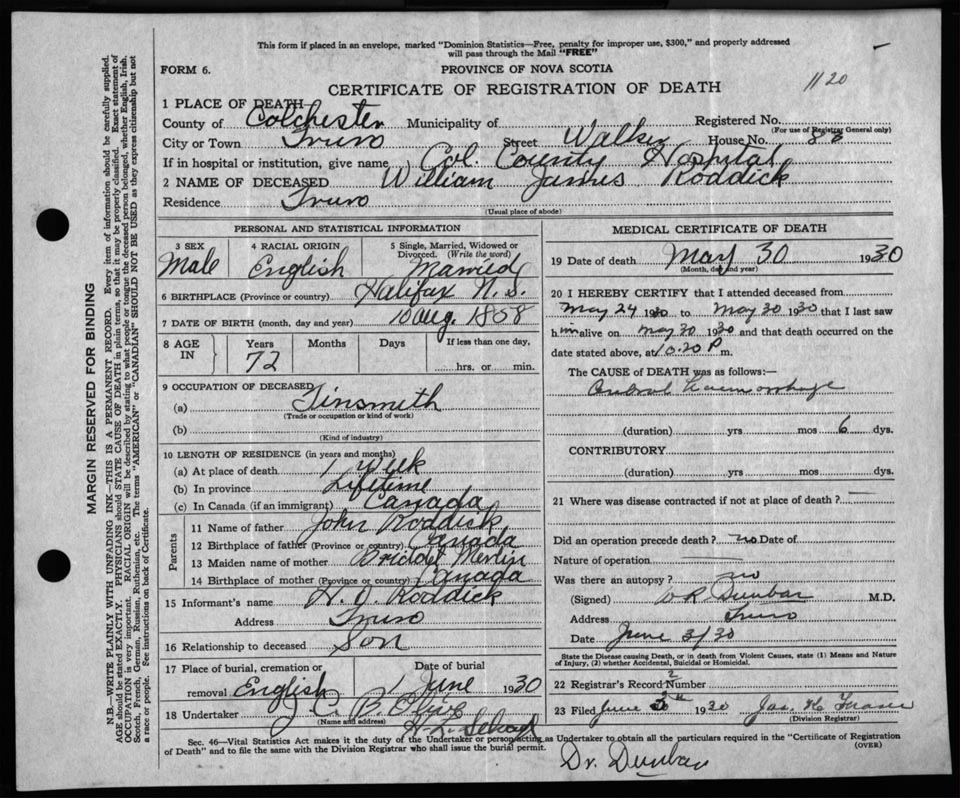 This form if placed in an envelope, marked "Dominion Statistics—Free, penalty for improper use, $300," and properly addressed
will pass through the Mail "FREE"
FORM 6.
PROVINCE OF NOVA SCOTIA
1120
CERTIFICATE OF REGISTRATION OF DEATH
1 PLACE OF DEATH
County of Colchester Municipality of Registered No.
(For use of Registrar General only)
City or Town Truro Street Walker House No.
If in hospital or institution, give name Col. County Hospital
2 NAME OF DECEASED William James Roddick
Residence Truro
(Usual place of abode)
PERSONAL AND STATISTICAL INFORMATION
3 SEX 4 RACIAL ORIGIN 5 Single, Married, Widowed or
Divorced. (Write the word)
Male English Married
6 BIRTHPLACE (Province or country) Halifax N.S.
7 DATE OF BIRTH (month, day and year) 10 Aug. 1858
8 AGE IN Years Months Days If less than one day,
72 hrs. or min.
9 OCCUPATION OF DECEASED
(a) Tinsmith
(Trade or occupation or kind of work)
(b)
(Kind of industry)
10 LENGTH OF RESIDENCE (in years and months)
(a) At place of death 1 Week
(b) In province Lifetime
(c) In Canada (if an immigrant) Canada
Parents
11 Name of father John Roddick
12 Birthplace of father (Province or country) Canada
13 Maiden name of mother Bridget
14 Birthplace of mother (Province or country) Canada
15 Informant's name H. J. Roddick
Address Truro
16 Relationship to deceased Son
17 Place of burial, cremation or Date of burial
removal English 1 June 1930
18 Undertaker J. C. B. Olive
(Name and address)
MEDICAL CERTIFICATE OF DEATH
19 Date of death May 30 1930
(Month, day and year)
20 I HEREBY CERTIFY that I attended deceased from
May 24 1930 to May 30 1930 that I last saw
him alive on May 30 1930 and that death occurred on the
date stated above, at 10.20 P m.
The CAUSE of DEATH was as follows:—
Cerebral haemorrhage
(duration) yrs mos 6 dys.
CONTRIBUTORY
(duration) yrs mos dys.
21 Where was disease contracted if not at place of death?
Did an operation precede death? no Date of
Nature of operation
Was there an autopsy? no
(Signed) Dunbar M.D.
Address Truro
Date June 3/30
State the Disease causing Death, or in death from Violent Causes, state (1) Means and Nature
of Injury, (2) whether Accidental, Suicidal or Homicidal.
22 Registrar's Record Number 2
23 Filed June 1930 Jas. H. Fraser
(Division Registrar)
Sec. 46—Vital Statistics Act makes it the duty of the Undertaker or person acting as Undertaker to obtain all the particulars required in the "Certificate of Registration
of Death" and to file the same with the Division Registrar who shall issue the burial permit.
(OVER)
Dr. Dunbar
MARGIN RESERVED FOR BINDING
N.B.—WRITE PLAINLY WITH UNFADING INK—THIS IS A PERMANENT RECORD. Every item of information should be carefully supplied.
AGE should be stated EXACTLY. PHYSICIANS should STATE CAUSE OF DEATH in plain terms, so that it may be properly classified. Exact statement of
OCCUPATION is very important. RACIAL ORIGIN will be described by stating to what people or tongue the deceased person belonged, whether English, Irish,
Scotch, French, German, Russian, Ruthenian, etc. The terms "AMERICAN" or "CANADIAN" SHOULD NOT BE USED as they express citizenship but not
a race or people. See instructions on back of Certificate.